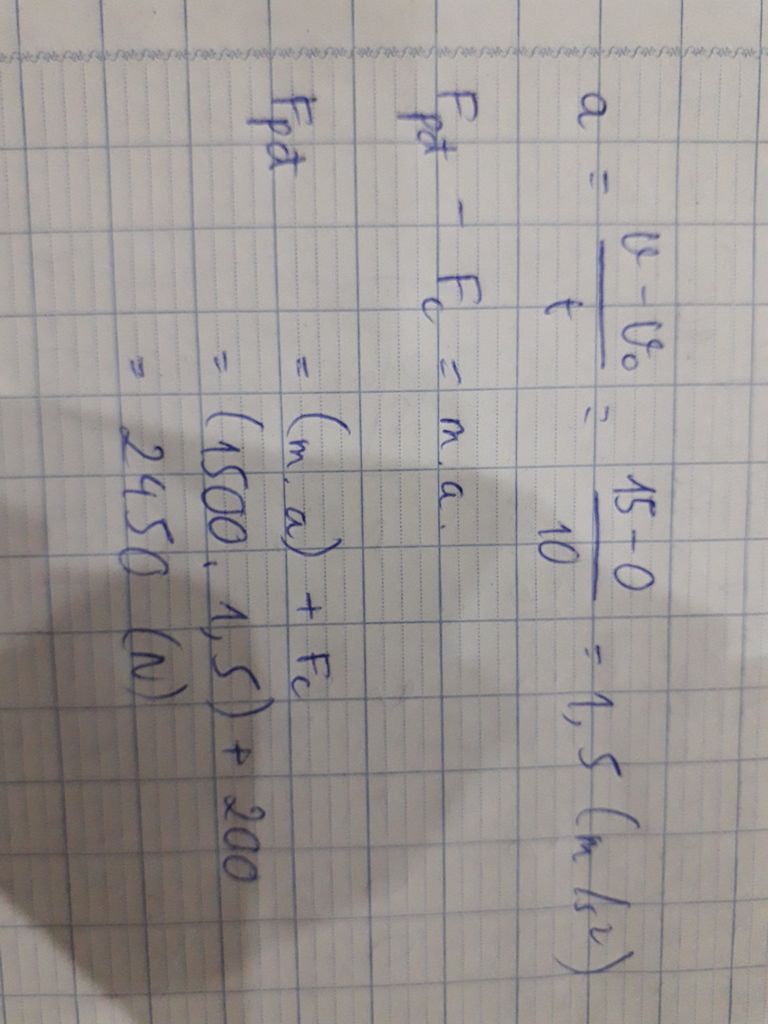 a = \frac{v - v_0}{t} = \frac{15 - 0}{10} = 1,5 (m/s²)
F_pđ - F_c = m.a.
F_pđ = (m.a) + F_c
= (1500 . 1,5) + 200
= 2450 (N)